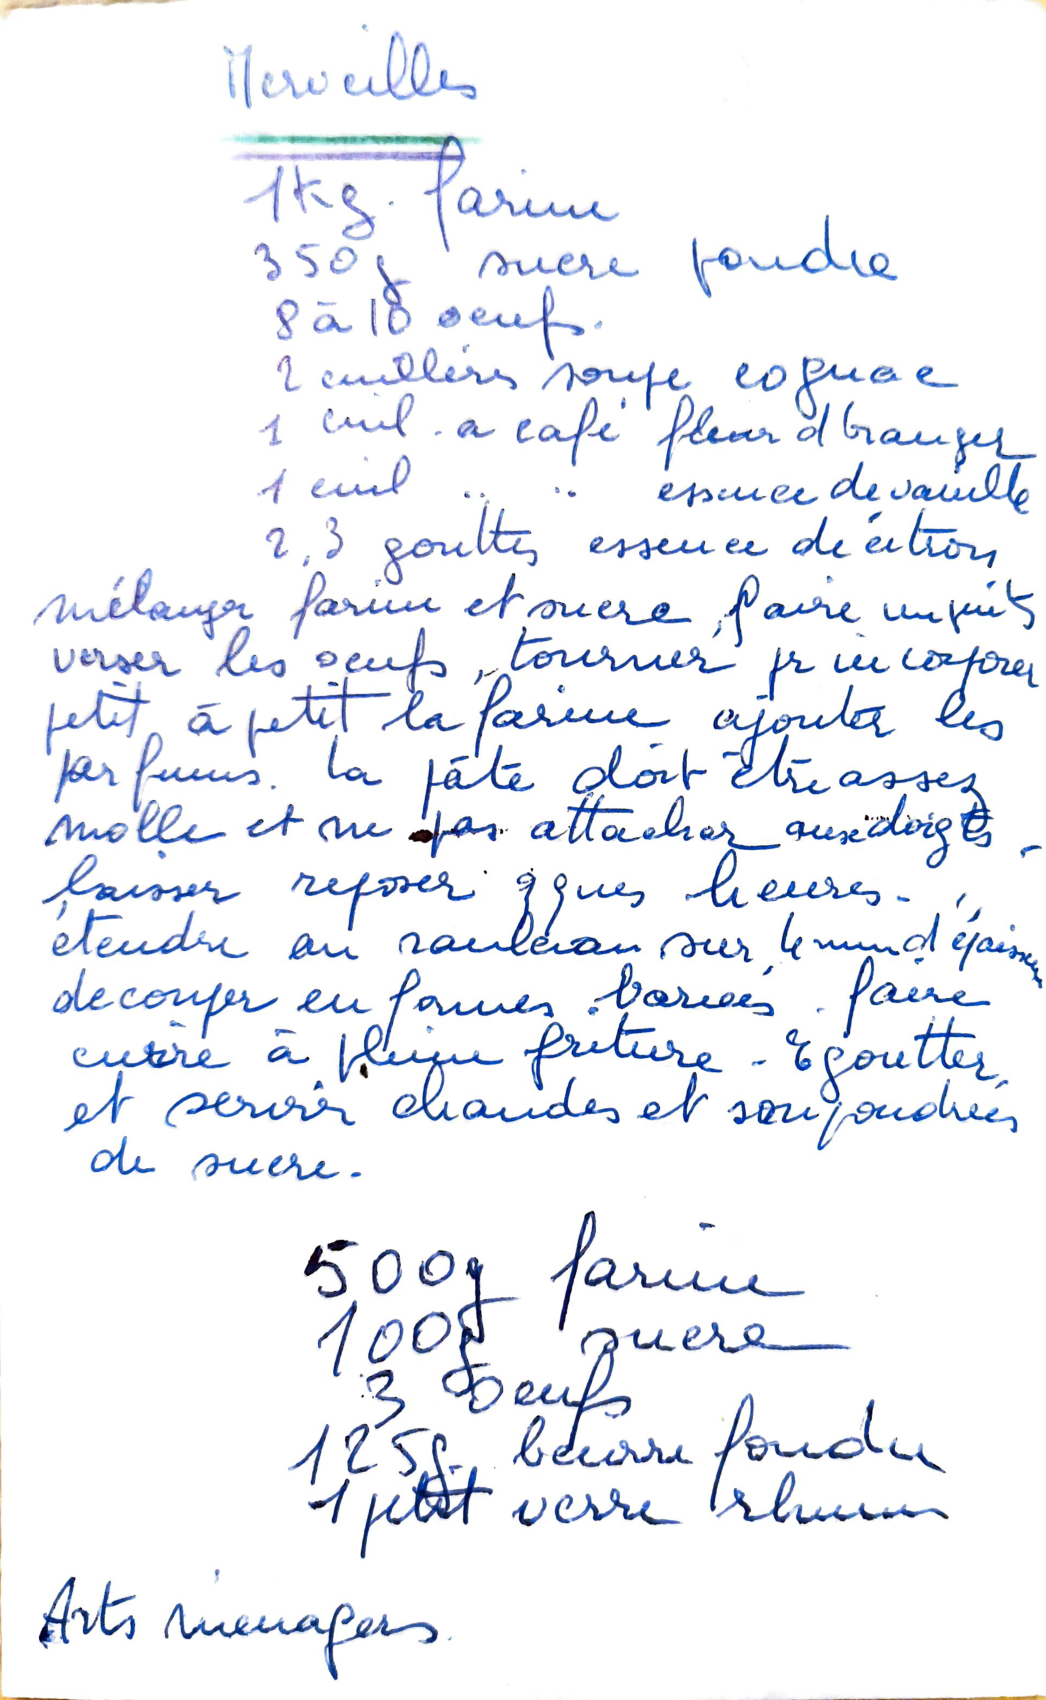 Merveilles
1kg. farine
350g sucre poudre
8 à 10 oeufs.
2 cuillères soupe cognac
1 cuil. a café fleur d'oranger
1 cuil " " essence de vanille
2,3 gouttes essence de citron
mélanger farine et sucre, faire un puits
verser les oeufs, tourner pr incorporer
petit à petit la farine ajouter les
parfums. la pâte doit être assez
molle et ne pas attacher aux doigts.
laisser reposer qques heures.
étendre au rouleau sur 4 mm d'épaisseur
decouper en formes variées. faire
cuire à pleine friture - Egoutter,
et servir chaudes et saupoudrées
de sucre.
500g farine
100g sucre
3 oeufs
125g. beurre fondu
1 petit verre rhum
Arts ménagers.